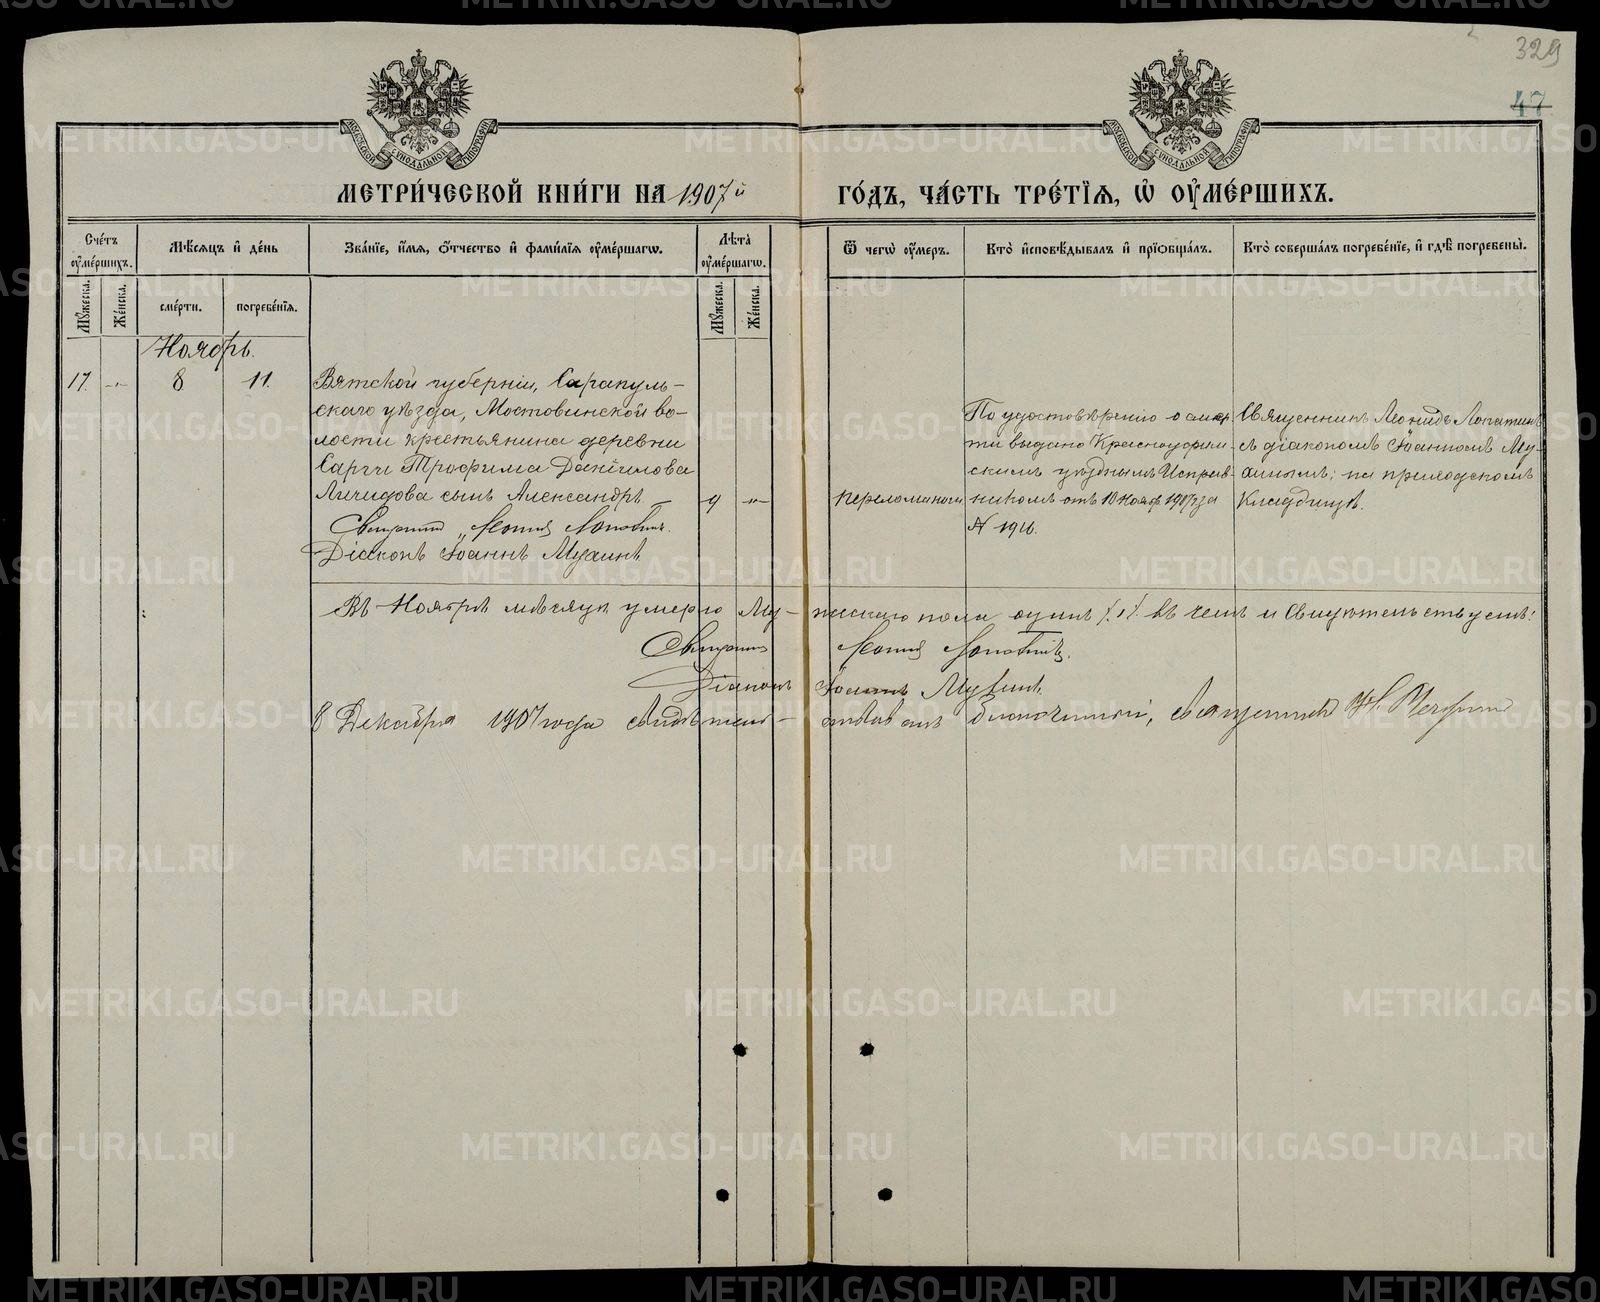 329
47
МОСКОВСКОЙ СѴНОДАЛЬНОЙ ТИПОГРАФІИ
МОСКОВСКОЙ СѴНОДАЛЬНОЙ ТИПОГРАФІИ
МЕТРИ́ЧЕСКОЙ КНИ́ГИ НА 1907й ГО́ДЪ, ЧА́СТЬ ТРЕ́ТІѦ, Ѡ҆ ОУ҆МЕ́РШИХЪ.
Сче́тъ оу҆ме́ршихъ.
Мѣ́сяцъ и҆ де́нь
Зва́ніе, и҆́мя, ѻ҆́тчество и҆ фами́лія оу҆ме́ршагѡ.
Лѣ́та оу҆ме́ршагѡ.
Ѿ чегѡ̀ оу҆́меръ.
Кто̀ и҆сповѣ́дывалъ и҆ прїѡбща́лъ.
Кто̀ соверша́лъ погребе́ніе, и҆ гдѣ̀ погребены̀.
Мꙋ́жеска.
Же́нска.
сме́рти.
погребе́нія.
Мꙋ́жеска.
Же́нска.
Ноябрь.
17. -„- 8 11.
Вятской губерніи, Сарапуль-
скаго уѣзда, Мостовинской во-
лости крестьянина деревни
Трофима Даніилова
сынъ Александръ — 9 -„-
Священникъ Леонидъ Лопатинъ.
Діаконъ Іоаннъ
По удостовѣренію о смер
ти выдано Красноуфим
скимъ уѣзднымъ Исправ
никомъ отъ 10 Нояб 1907 за
№
Священникъ Леонидъ Лопатинъ
съ діакономъ Іоанномъ
на приходскомъ
Кладбищѣ.
Въ Ноябрѣ мѣсяцѣ умерло Му-жескаго пола одинъ /:1:/. въ чемъ и свидѣтельствуемъ:
Священникъ Леонидъ Лопатинъ.
Діаконъ Іоаннъ
8 Декабря 1907 года свидѣтель-ствовалъ Благочинный, священникъ
METRIKI.GASO-URAL.RU